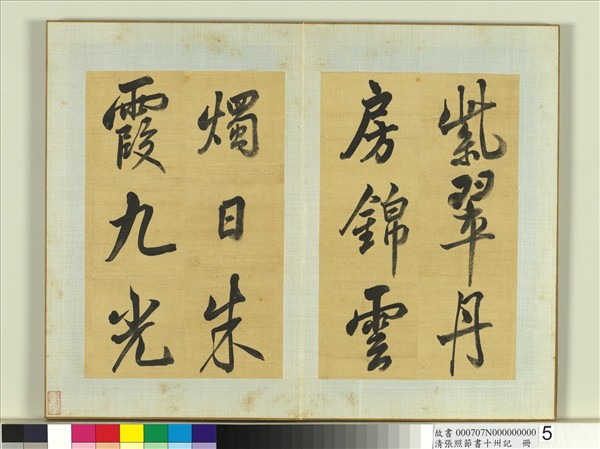 紫翠丹
房錦雲
燭日朱
霞九光
故書 000707N000000000
清張照節書十州記 冊
5